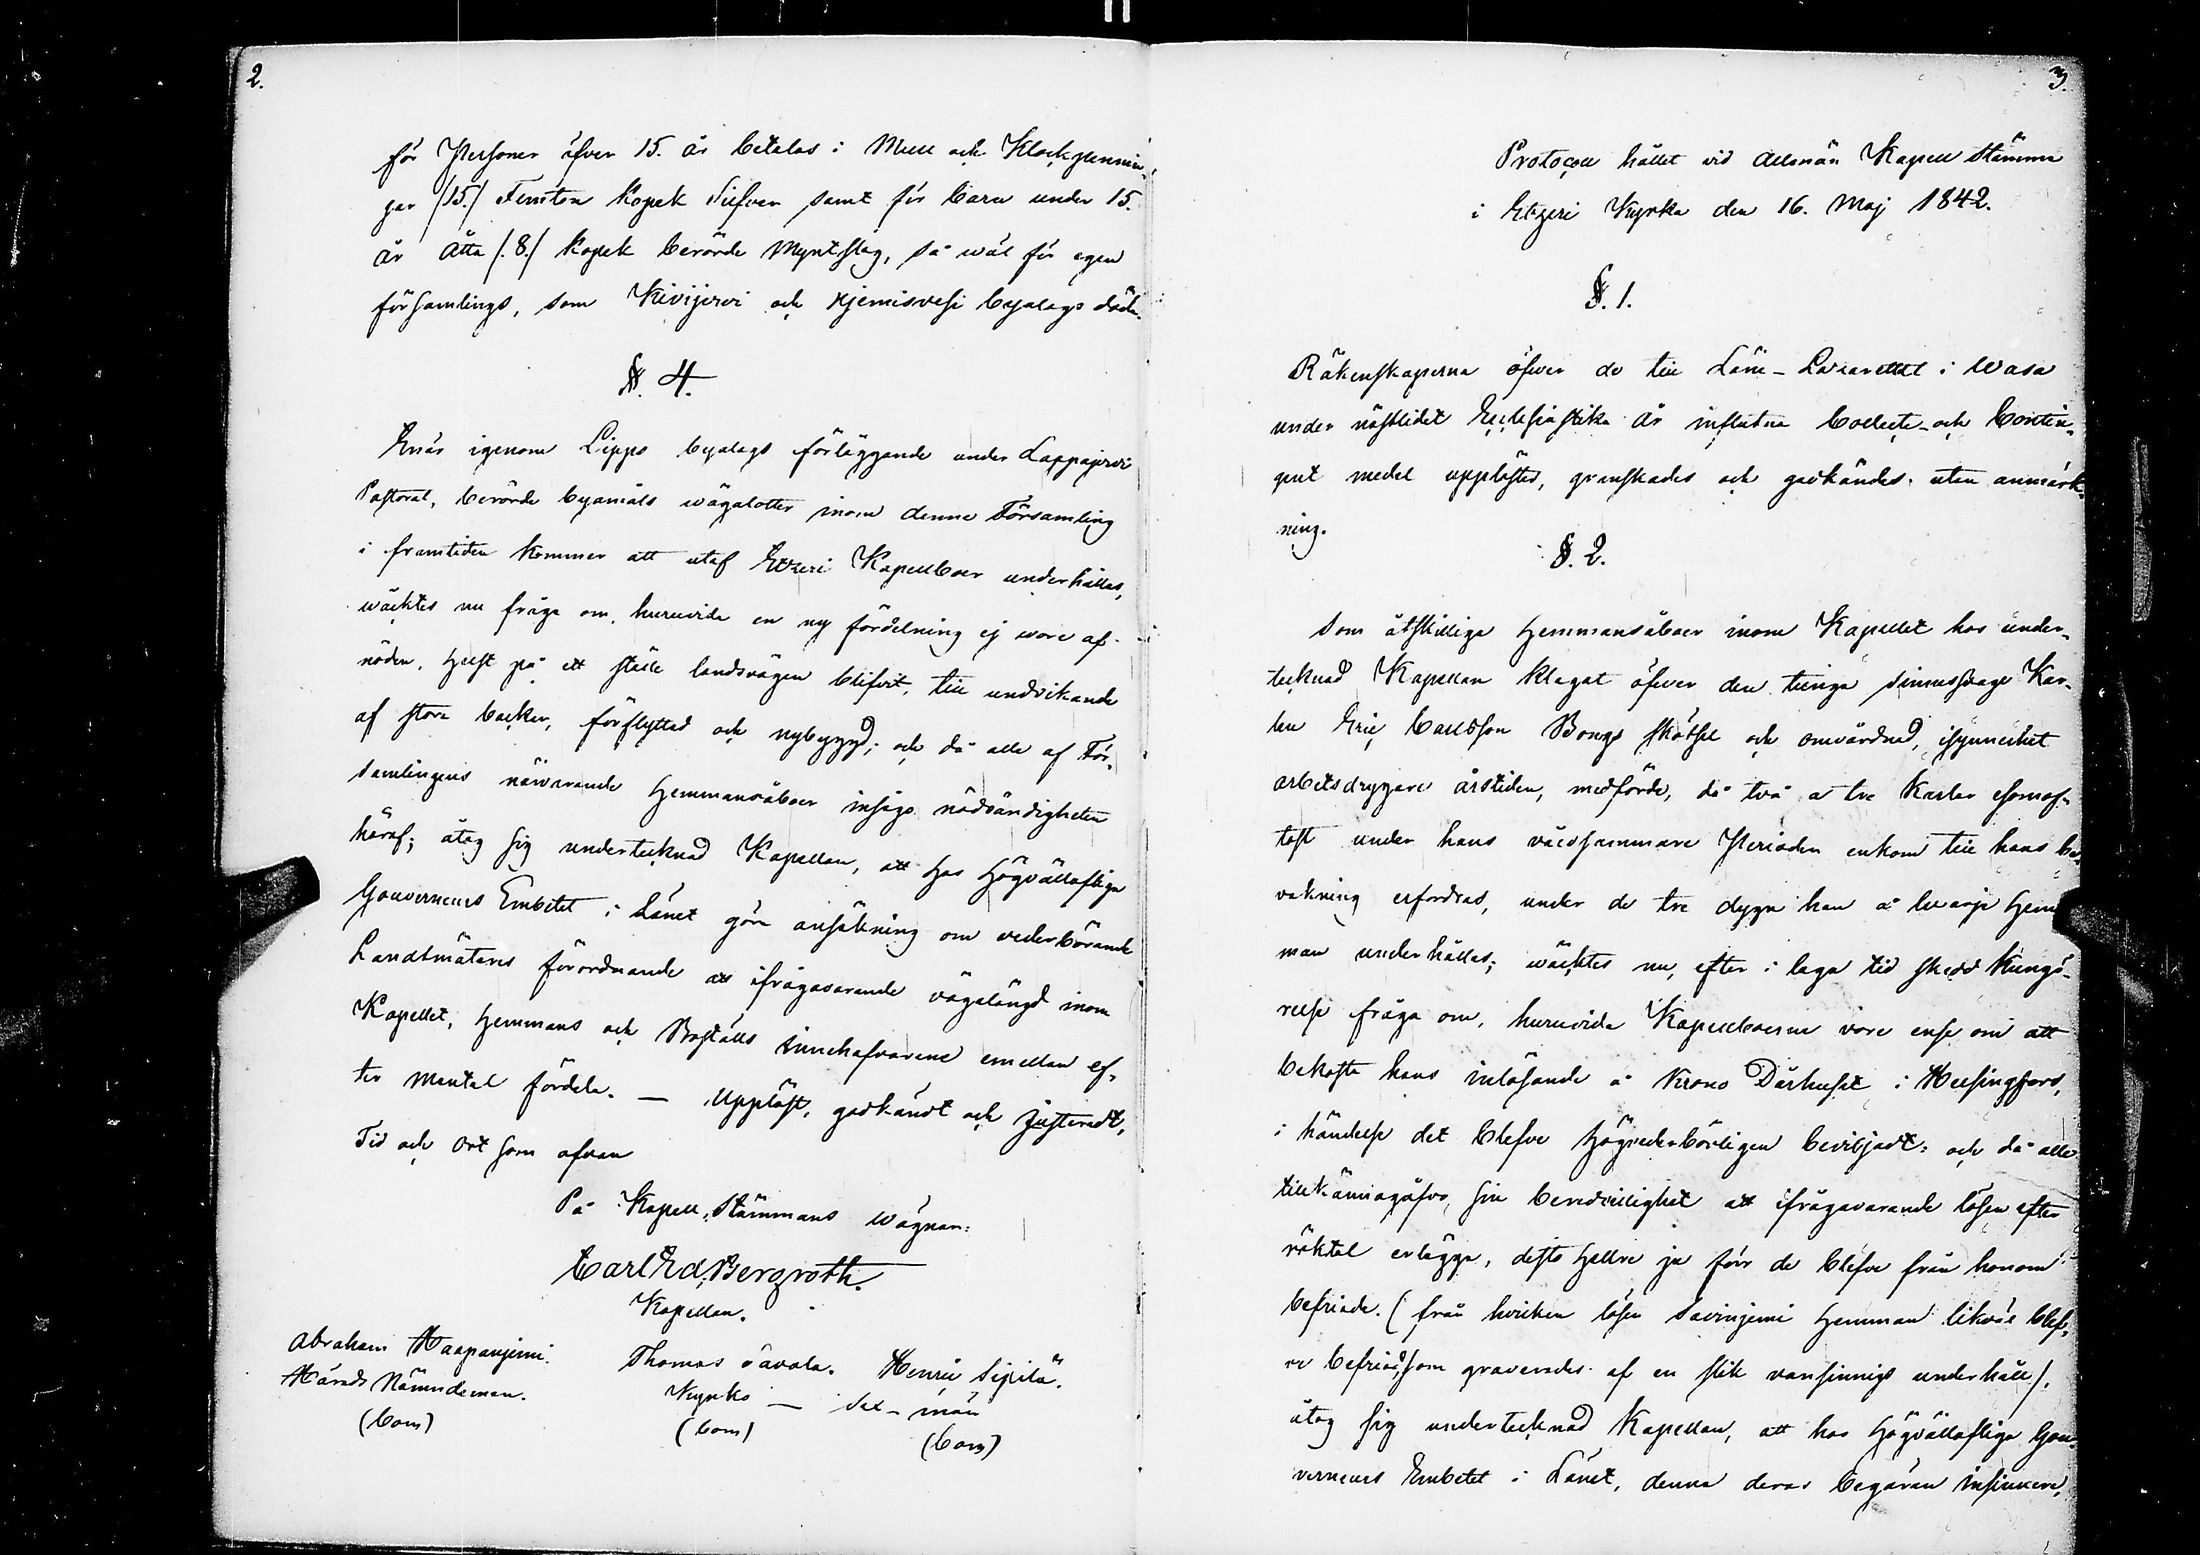 2.
för Personer öfver 15. år betalas i Mull och Klockpennin¬
gar /15./ Femton Kopek Silfver samt för barn under 15.
år åtta /.8./ kopek berörde Myntslag, så wäl för egen
församlings, som Kivijervi och Hjemisvesi byalags döda.
§. 4.
Enär igenom Lipps byalags förläggande under Lappajervi
Pastoral, berörde byamåls wägalotter inom denna Församling
i framtiden kommer att utaf Etzeri Kapellboer underhållas,
wäcktes nu fråga om, huruvida en ny fördelning ej wore af
nöden, helst på ett ställe landsvägen blifvit, till undvikande
af stora backar, förflyttad och nybyggd; och då alla af För¬
samlingens närvarande Hemmansåboer insågo nödvändigheten
häraf; åtog sig undertecknad Kapellan, att hos Högvällofliga
Gouverneurs Embetet i Länet göra ansökning om vederbörande
Landtmäteres förordnande att ifrågavarande vägalängd inom
Kapellet, Hemmans och Boställs innehafvarena emellan ef¬
ter Mantal fördela. — Uppläst, godkändt och justeradt,
Tid och Ort som ofvan
På Kapell Stämmans Wägnar:
Carl Ed. Bergroth.
Kapellan.
Abraham Haapaniemi. Thomas Savola. Henric Sipilä.
Härads Nämndeman. Kyrko — Sex-män
(bom) (bom) (bom)
3.
Protocoll hållet vid Allmän Kapell Stämma
i Etzeri Kyrka den 16. Maj 1842.
§. 1.
Räkenskaperna öfver de till Läns-Lazarettet i Wasa
under nästlidet Ecclesiastika år influtna Collecte- och Contin¬
gent medel upplästes, granskades och godkändes utan anmärk¬
ning.
§. 2.
Som åtskillige Hemmansåboer inom Kapellet hos under¬
tecknad Kapellan klagat öfver den tunga sinnessvage Kar¬
len Eric Carlsson Bongs skötsel och omvårdnad, isynnerhet
arbetsdrygare årstiden, medförde, då två a tre karlar esomof¬
tast under hans våldsammare Perioder enkom till hans be¬
vakning erfordras, under de tre dygn han å hvarje Hem¬
man underhålles; wäcktes nu, efter i laga tid skedd Kungö¬
relse fråga om, huruvida Kapellboerne vore ense om att
bekosta hans inlösande å Krono Dårhuset i Helsingfors,
i händelse det blefve Högvederbörligen beviljadt: och då alla
tillkännagåfvo, sin beredvillighet att ifrågavarande lösen efter
röktal erlägga, desto hellre ju förr de blefve från honom
befriade. (från hvilken lösen Savinjemi Hemman likväl blef¬
ve befriad, som graverades af en slik vansinnigs underhåll).
åtog sig undertecknad Kapellan, att hos Högvällofliga Gou¬
verneurs Embetet i Länet, denna deras begäran insinuera,